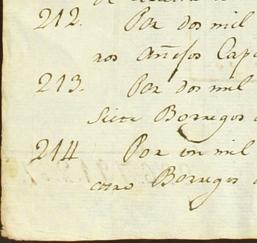 212. Por dos mil
nos Añejos Cap
213. Por dos mil
Siete Borregos
214 Por un mil
Borregos